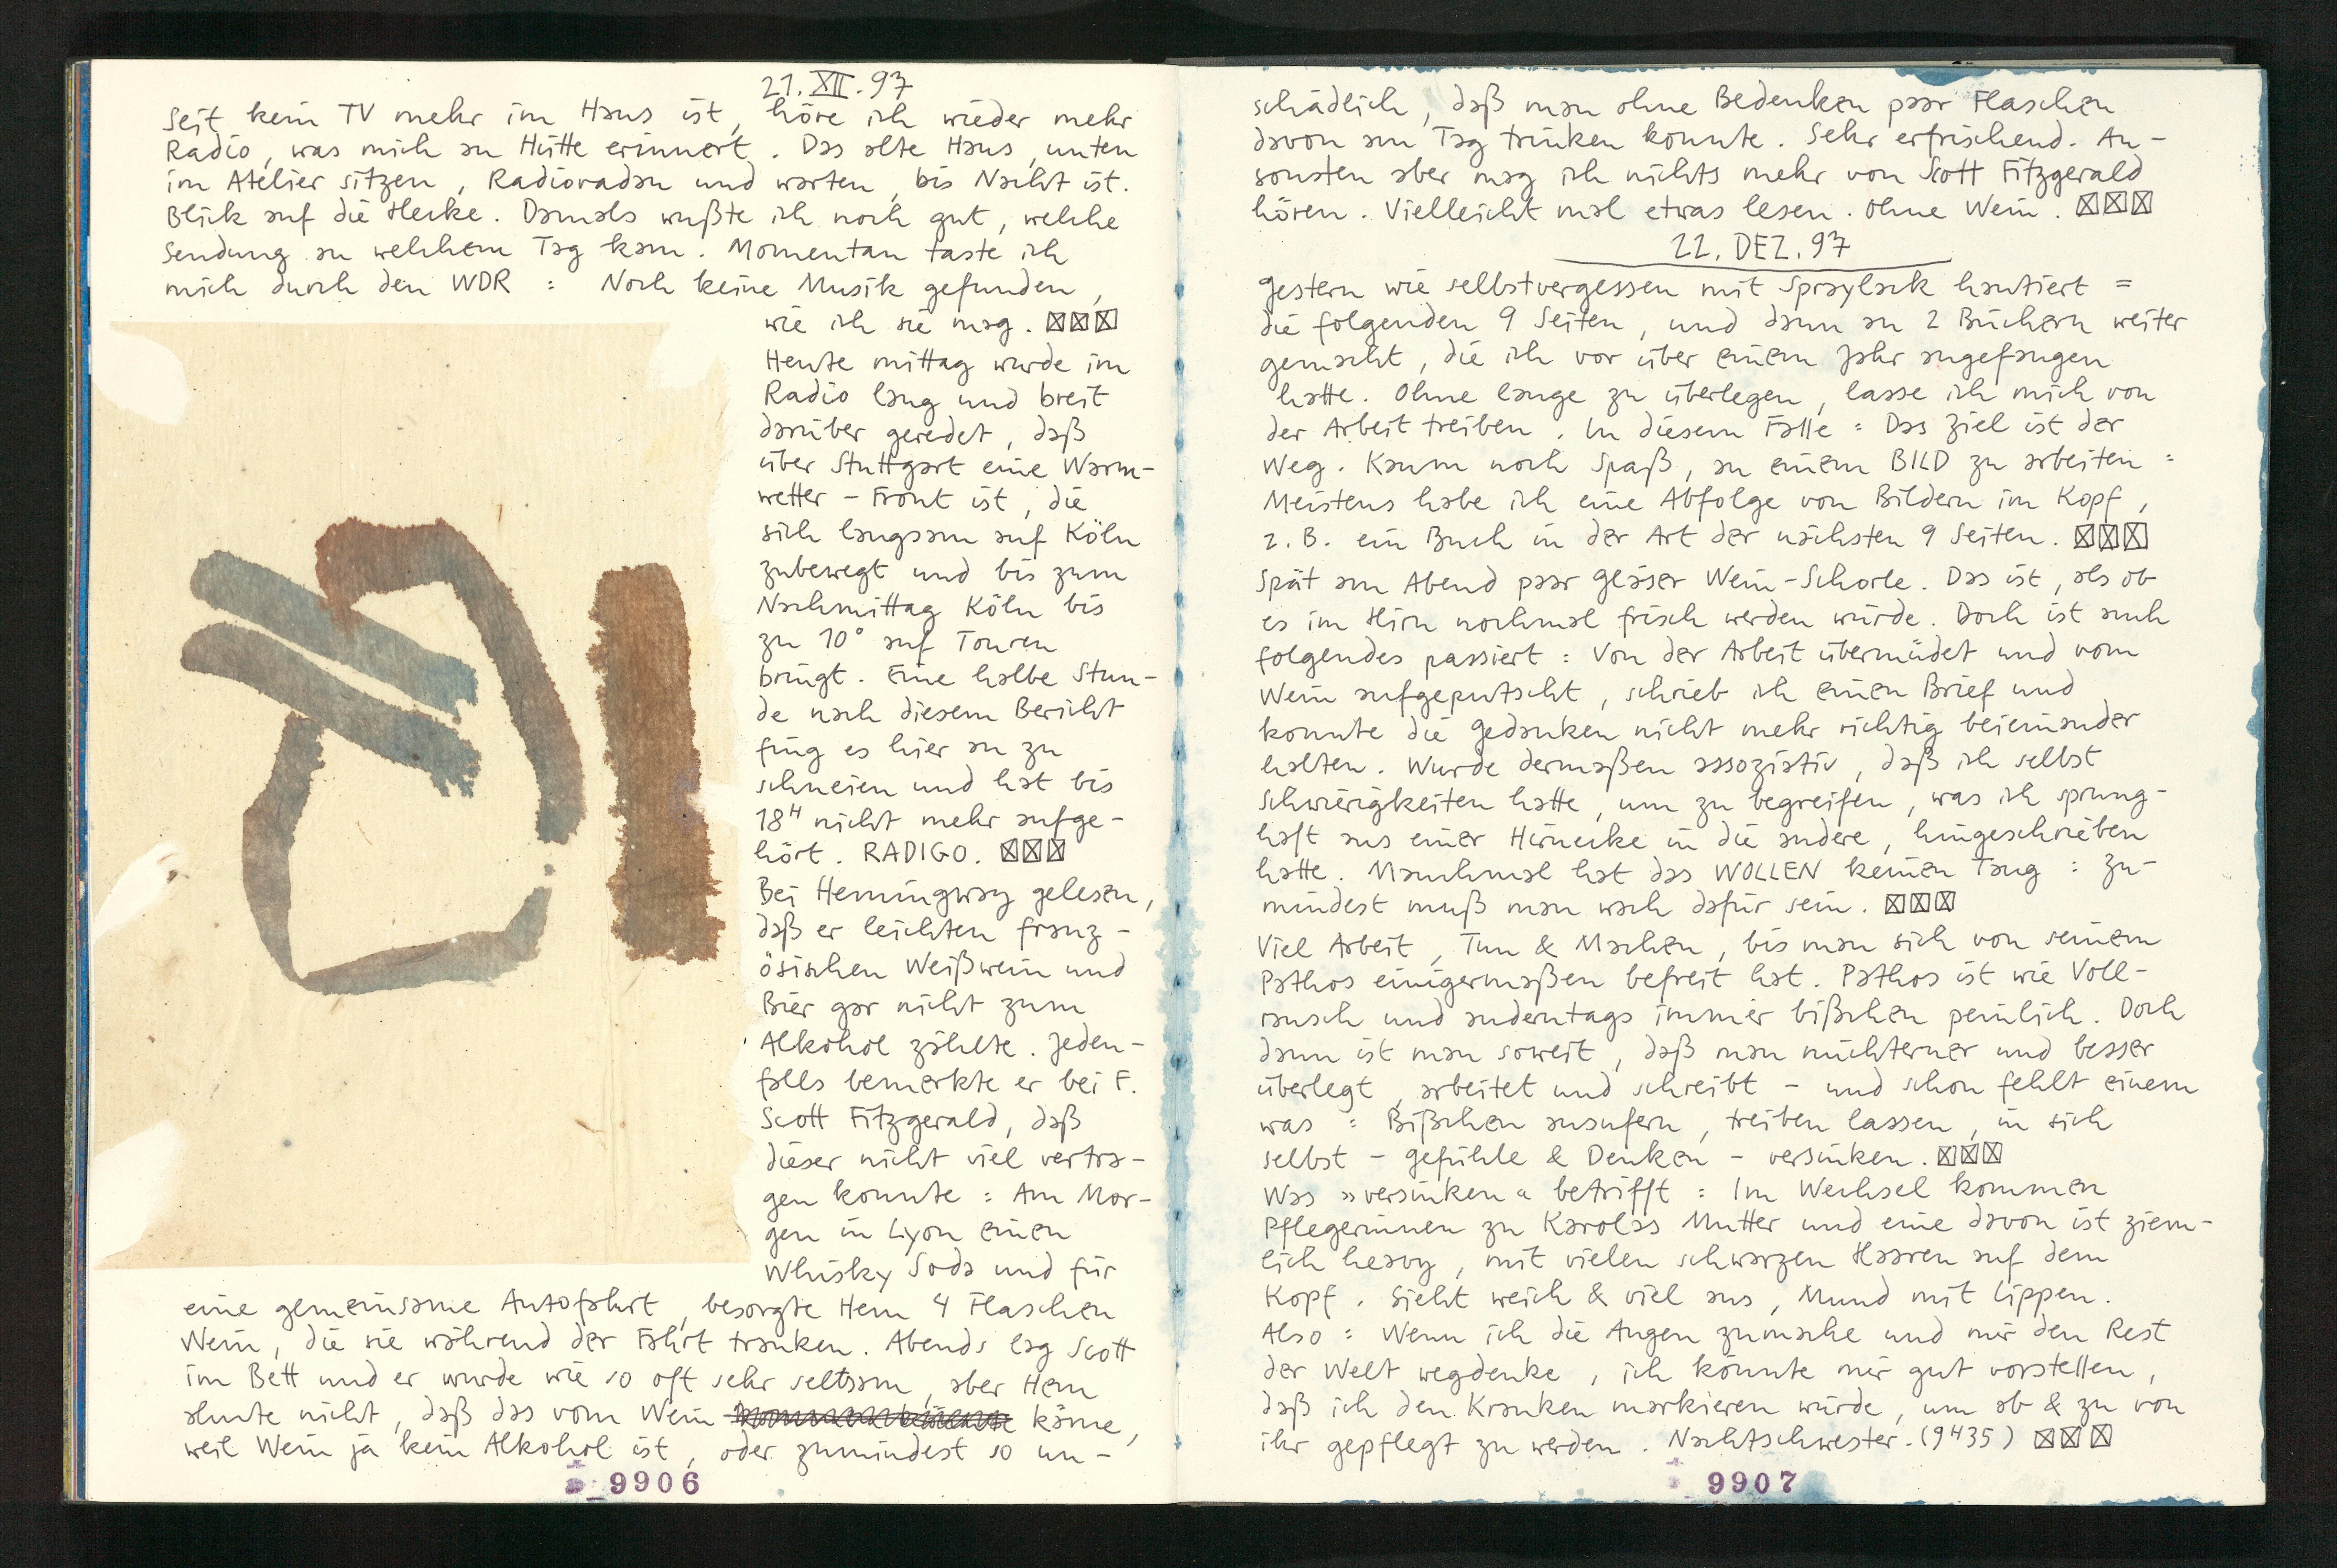 21. XII. 97
Seit kein TV mehr im Haus ist, höre ich wieder mehr
Radio, was mich an Hütte erinnert. Das alte Haus, unten
im Atelier sitzen, Radioradau und warten, bis Nacht ist.
Blick auf die Hecke. Damals wußte ich noch gut, welche
Sendung an welchem Tag kam. Momentan taste ich
mich durch den WDR : Noch keine Musik gefunden,
wie ich sie mag. ☒☒☒
Heute mittag wurde im
Radio lang und breit
darüber geredet, daß
über Stuttgart eine Warm-
wetter-Front ist, die
sich langsam auf Köln
zubewegt und bis zum
Nachmittag Köln bis
zu 10° auf Touren
bringt. Eine halbe Stun-
de nach diesem Bericht
fing es hier an zu
schneien und hat bis
18H nicht mehr aufge-
hört. RADIGO. ☒☒☒
Bei Hemingway gelesen,
daß er leichten franz-
ösischen Weißwein und
Bier gar nicht zum
Alkohol zählte. Jeden-
falls bemerkte er bei F.
Scott Fitzgerald, daß
dieser nicht viel vertra-
gen konnte : Am Mor-
gen in Lyon einen
Whisky Soda und für
eine gemeinsame Autofahrt, besorgte Hem 4 Flaschen
Wein, die sie während der Fahrt tranken. Abends lag Scott
im Bett und er wurde wie so oft sehr seltsam, aber Hem
ahnte nicht, daß das vom Wein käme,
weil Wein ja kein Alkohol ist, oder zumindest so un-
9906
schädlich, daß man ohne Bedenken paar Flaschen
davon am Tag trinken konnte. Sehr erfrischend. An-
sonsten aber mag ich nichts mehr von Scott Fitzgerald
hören. Vielleicht mal etwas lesen. Ohne Wein. ☒☒☒
22. DEZ. 97
Gestern wie selbstvergessen mit Spraylack hantiert =
die folgenden 9 Seiten, und dann an 2 Büchern weiter
gemacht, die ich vor über einem Jahr angefangen
hatte. Ohne lange zu überlegen, lasse ich mich von
der Arbeit treiben. In diesem Falle : Das Ziel ist der
Weg. Kaum noch Spaß, an einem BILD zu arbeiten :
Meistens habe ich eine Abfolge von Bildern im Kopf,
z. B. ein Buch in der Art der nächsten 9 Seiten. ☒☒☒
Spät am Abend paar Gläser Wein-Schorle. Das ist, als ob
es im Hirn nochmal frisch werden würde. Doch ist auch
folgendes passiert : Von der Arbeit übermüdet und vom
Wein aufgeputscht, schrieb ich einen Brief und
konnte die Gedanken nicht mehr richtig beieinander
halten. Wurde dermaßen assoziativ, daß ich selbst
Schwierigkeiten hatte, um zu begreifen, was ich sprung-
haft aus einer Hirnecke in die andere, hingeschrieben
hatte. Manchmal hat das WOLLEN keinen Tang : Zu-
mindest muß man wach dafür sein. ☒☒☒
Viel Arbeit, Tun & Machen, bis man sich von seinem
Pathos einigermaßen befreit hat. Pathos ist wie Voll-
rausch und anderntags immer bißchen peinlich. Doch
dann ist man soweit, daß man nüchterner und besser
überlegt, arbeitet und schreibt – und schon fehlt einem
was : Bißchen ausufern, treiben lassen, in sich
selbst – Gefühle & Denken – versinken. ☒☒☒
Was »versinken« betrifft : Im Wechsel kommen
Pflegerinnen zu Karolas Mutter und eine davon ist ziem-
lich heavy, mit vielen schwarzen Haaren auf dem
Kopf. Sieht weich & viel aus, Mund mit Lippen.
Also : Wenn ich die Augen zumache und mir den Rest
der Welt wegdenke, ich könnte mir gut vorstellen,
daß ich den Kranken markieren würde, um ab & zu von
ihr gepflegt zu werden. Nachtschwester. (9435) ☒☒☒
9907